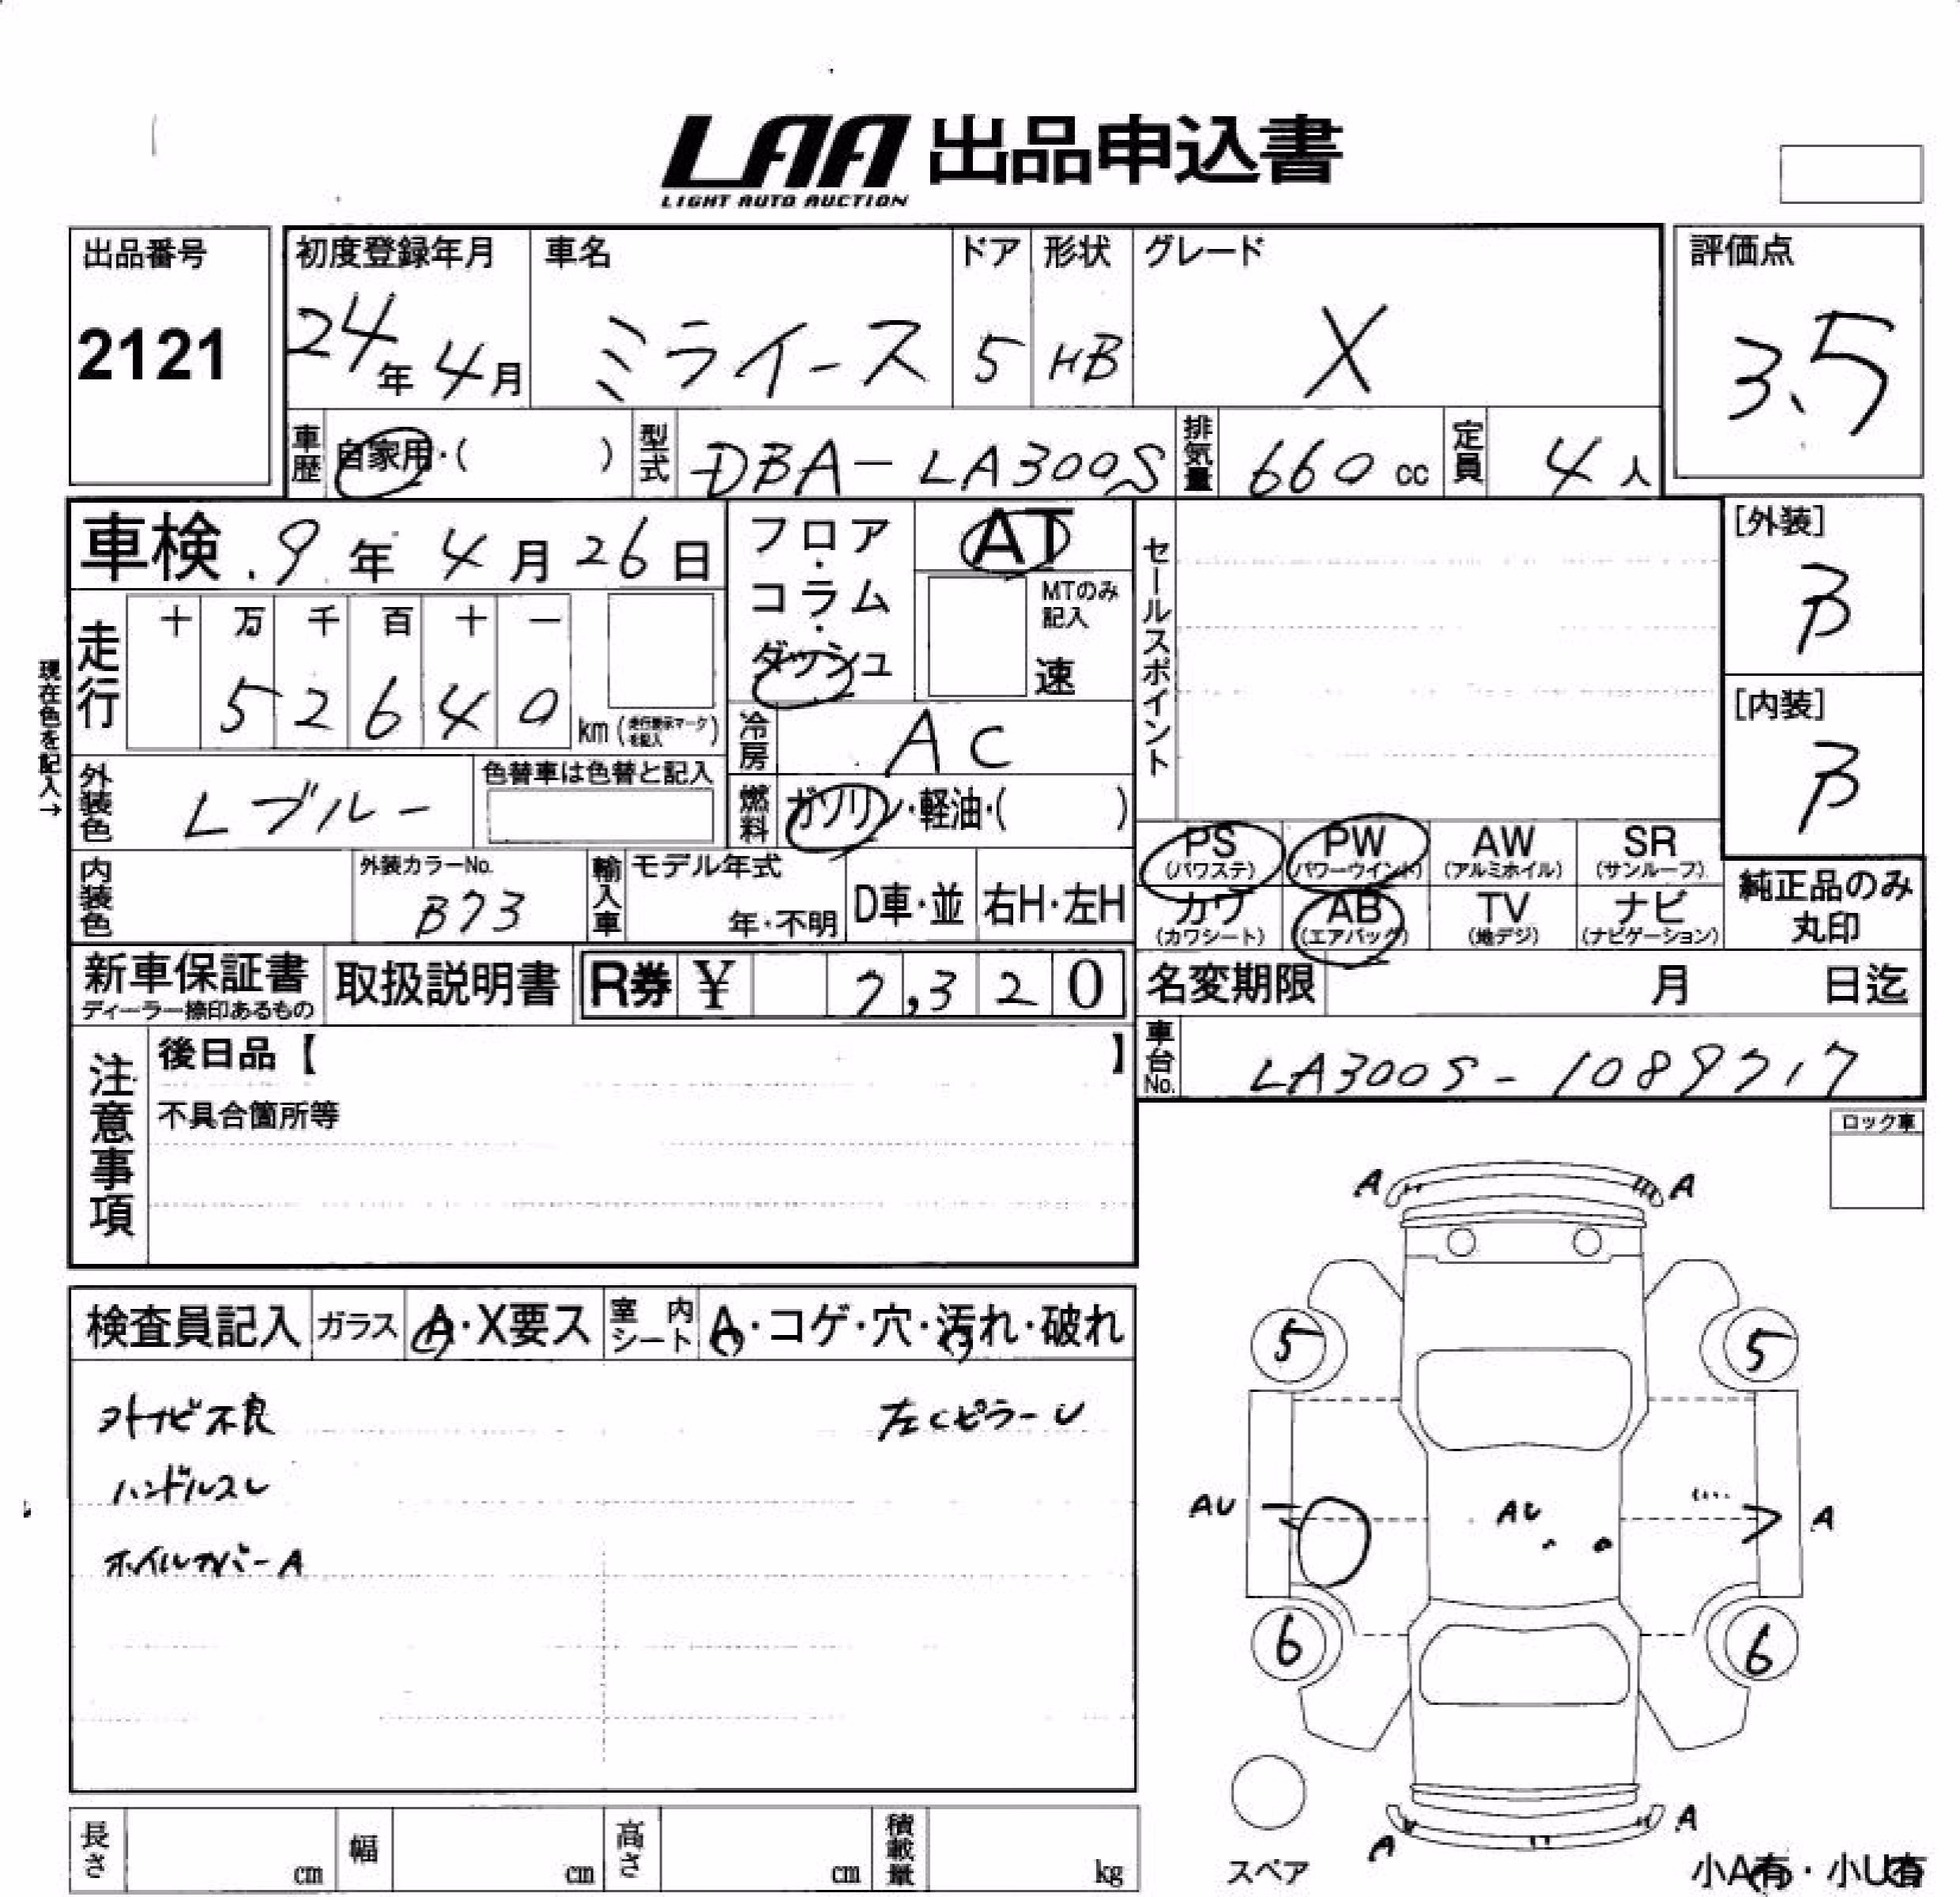 LAA 出品申込書
LIGHT AUTO AUCTION
出品番号
2121
初度登録年月
24年4月
車名
ミライース
ドア
5
形状
HB
グレード
X
評価点
3.5
車歴
自家用・( )
型式
DBA-LA300S
排気量
660cc
定員
4人
車検 9年4月26日
フロア・コラム・ダッシュ
AT
MTのみ記入
速
セールスポイント
[外装]
B
[内装]
B
現在色を記入→
走行
十 万 千 百 十 一
5 2 6 4 0
km (走行表示マークを記入)
冷房
AC
外装色
Lブルー
色替車は色替と記入
燃料
ガソリン・軽油・( )
PS (パワステ)
PW (パワーウインド)
AW (アルミホイル)
SR (サンルーフ)
カワ (カワシート)
AB (エアバック)
TV (地デジ)
ナビ (ナビゲーション)
純正品のみ丸印
内装色
外装カラーNo.
B73
輸入車
モデル年式
年・不明
D車・並
右H・左H
新車保証書
ディーラー捺印あるもの
取扱説明書
R券 ¥ 7,320
名変期限 月 日迄
車台No.
LA300S-1089717
注意事項
後日品【 】
不具合箇所等
ロック車
検査員記入
ガラス
A・X要ス
室内シート
A・コゲ・穴・汚れ・破れ
不良
左CピラーU
ハンドルスレ
ホイルカバーA
A A
5 5
AU AU A
6 6
A A
スペア
小A有・小U有
長さ cm
幅 cm
高さ cm
積載量 kg